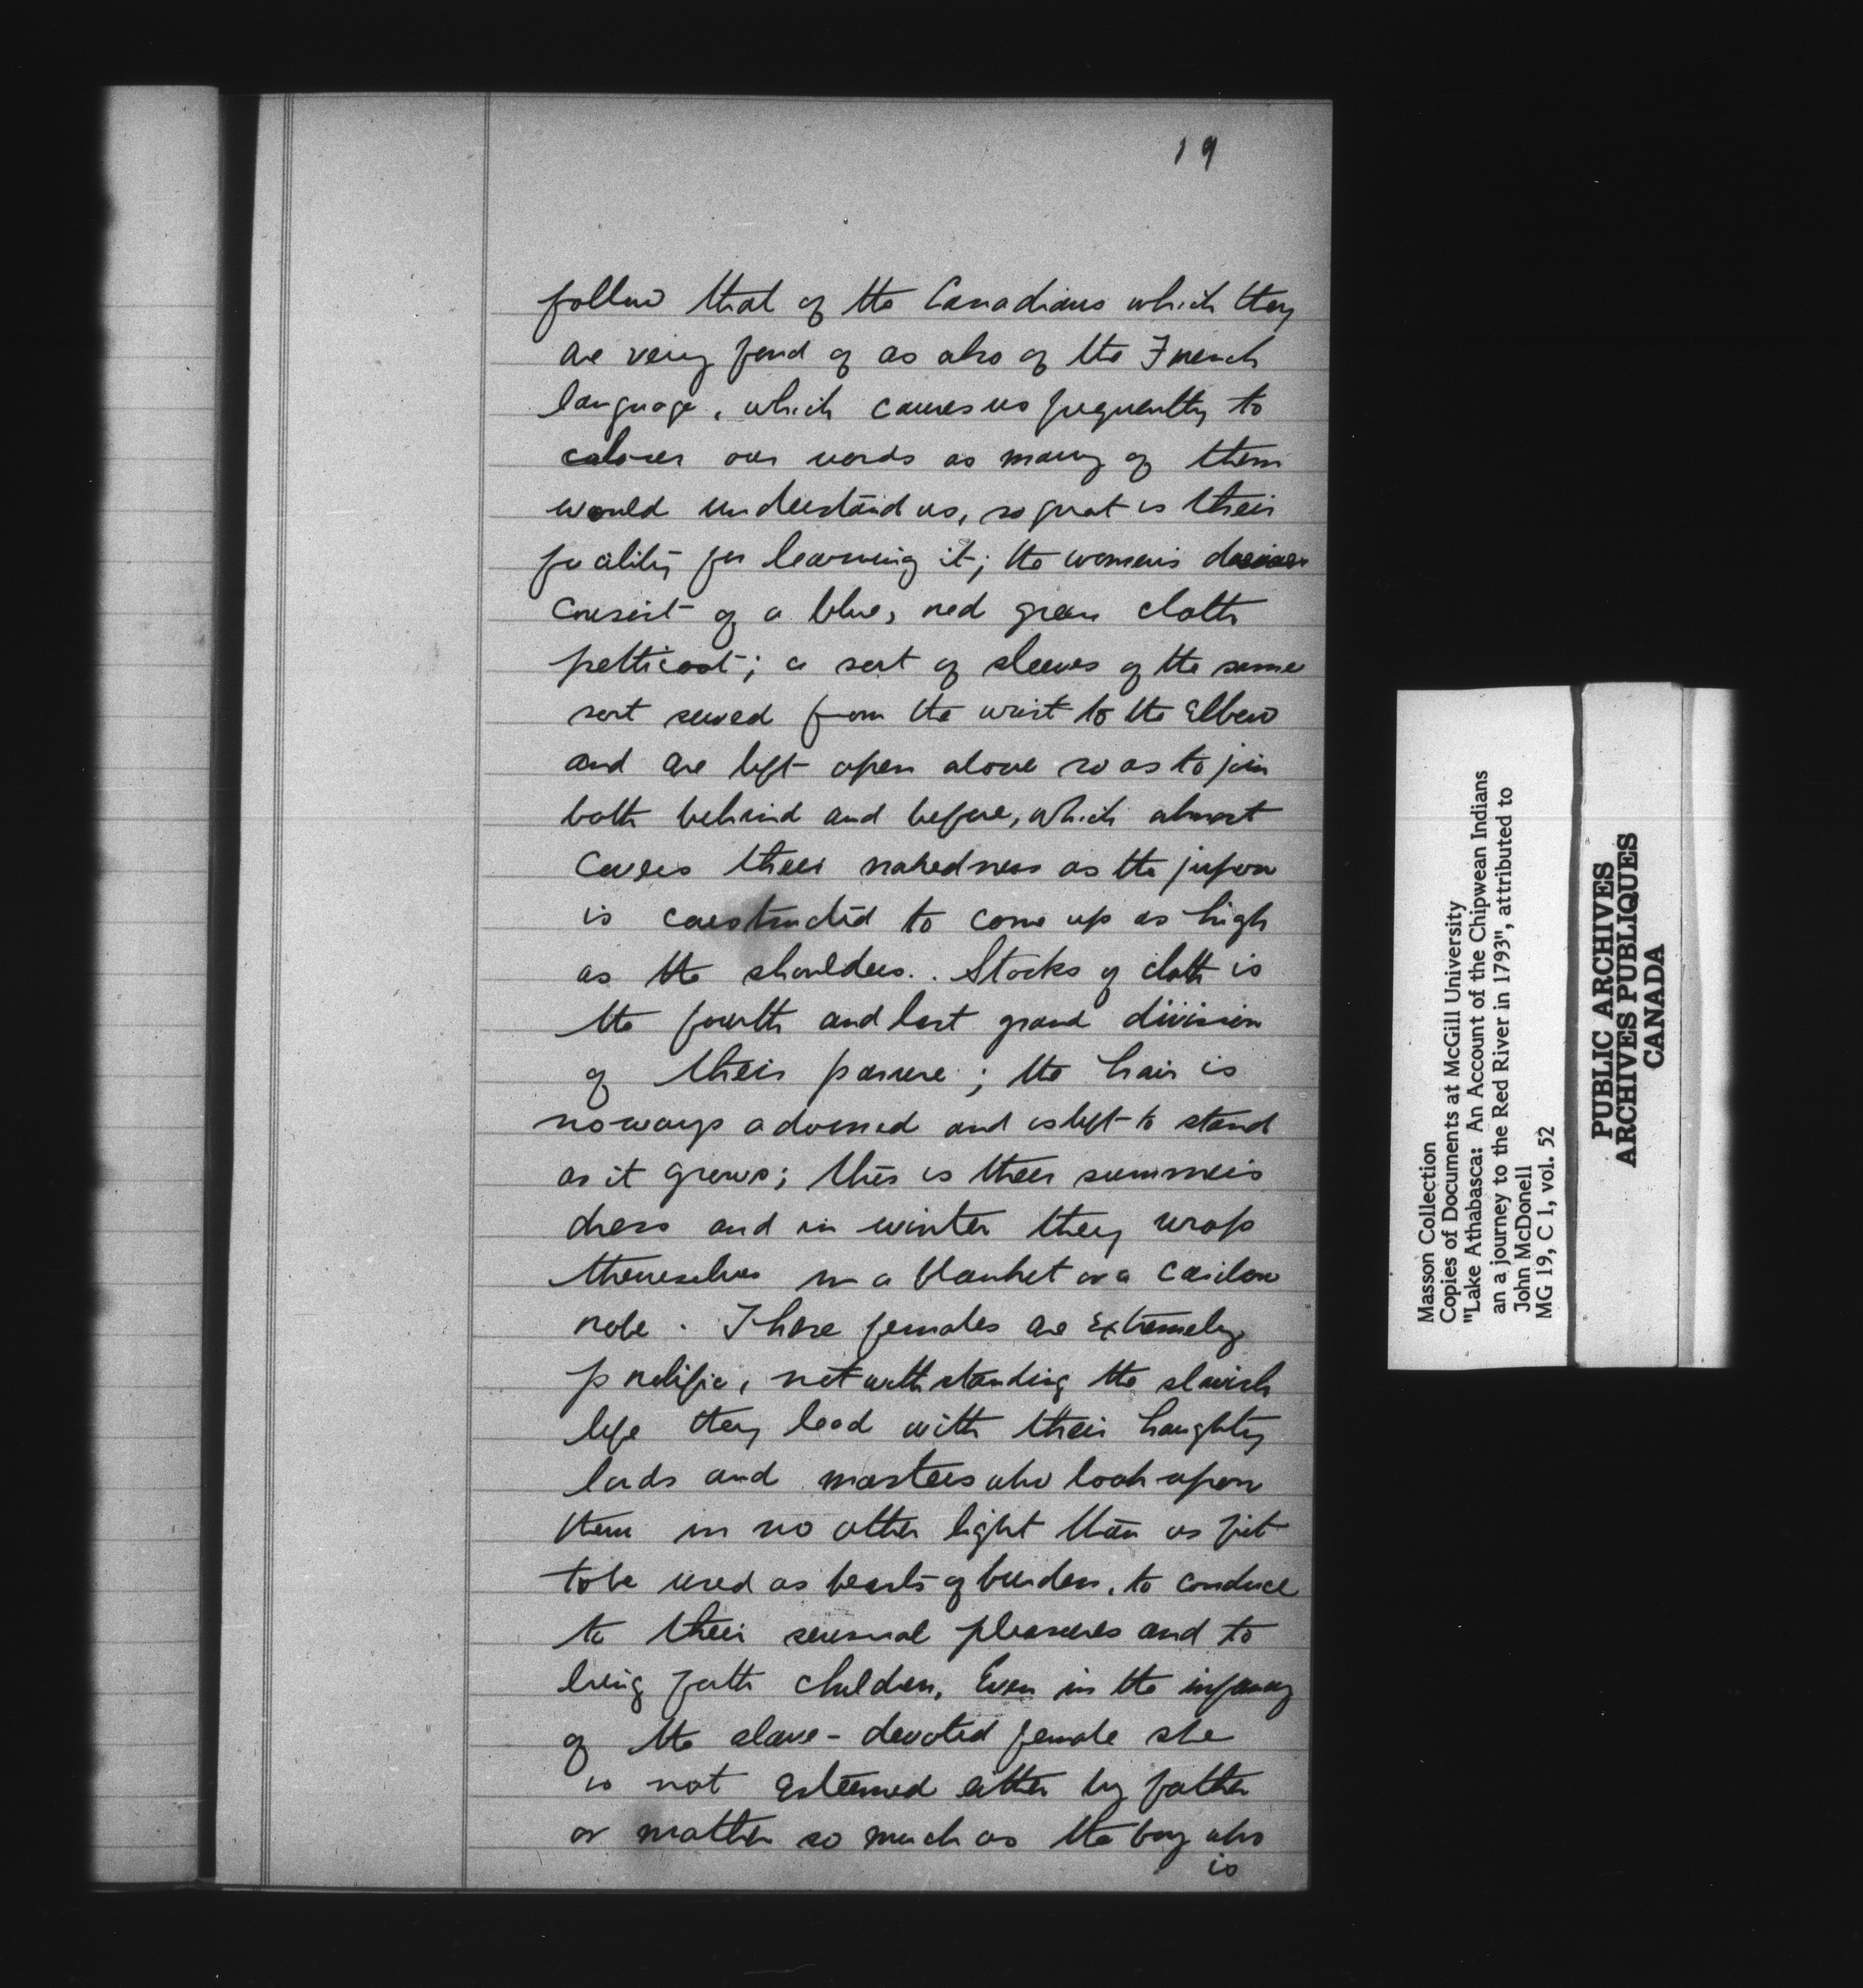 19
follow that of the Canadians which they
are very fond of as also of the French
language, which causes us frequently to
colour our words as many of them
would understand us, so great is their
facility for learning it; the women's
consist of a blue, red green cloth
petticoat; a sort of sleeves of the same
sort sewed from the wrist to the Elbow
and are left open above so as to join
both behind and before, which almost
covers their nakedness as the jupon
is constructed to come up as high
as the shoulders. Stocks of cloth is
the fourth and last grand division
of their parure; the hair is
noways adorned and is left to stand
as it grows; this is their summer's
dress and in winter they wrap
themselves in a blanket or a Caribou
robe. These females are Extremely
prolific, notwithstanding the slavish
life they lead with their haughty
lords and masters who look upon
them in no other light than as fit
to be used as beasts of burden, to conduce
to their sensual pleasures and to
bring forth children. Even in the infancy
of the slave-devoted female she
is not Esteemed either by father
or mother so much as the boy who
is
Masson Collection
Copies of Documents at McGill University
"Lake Athabasca: An Account of the Chipwean Indians
an a journey to the Red River in 1793", attributed to
John McDonell
MG 19, C 1, vol. 52
PUBLIC ARCHIVES
ARCHIVES PUBLIQUES
CANADA